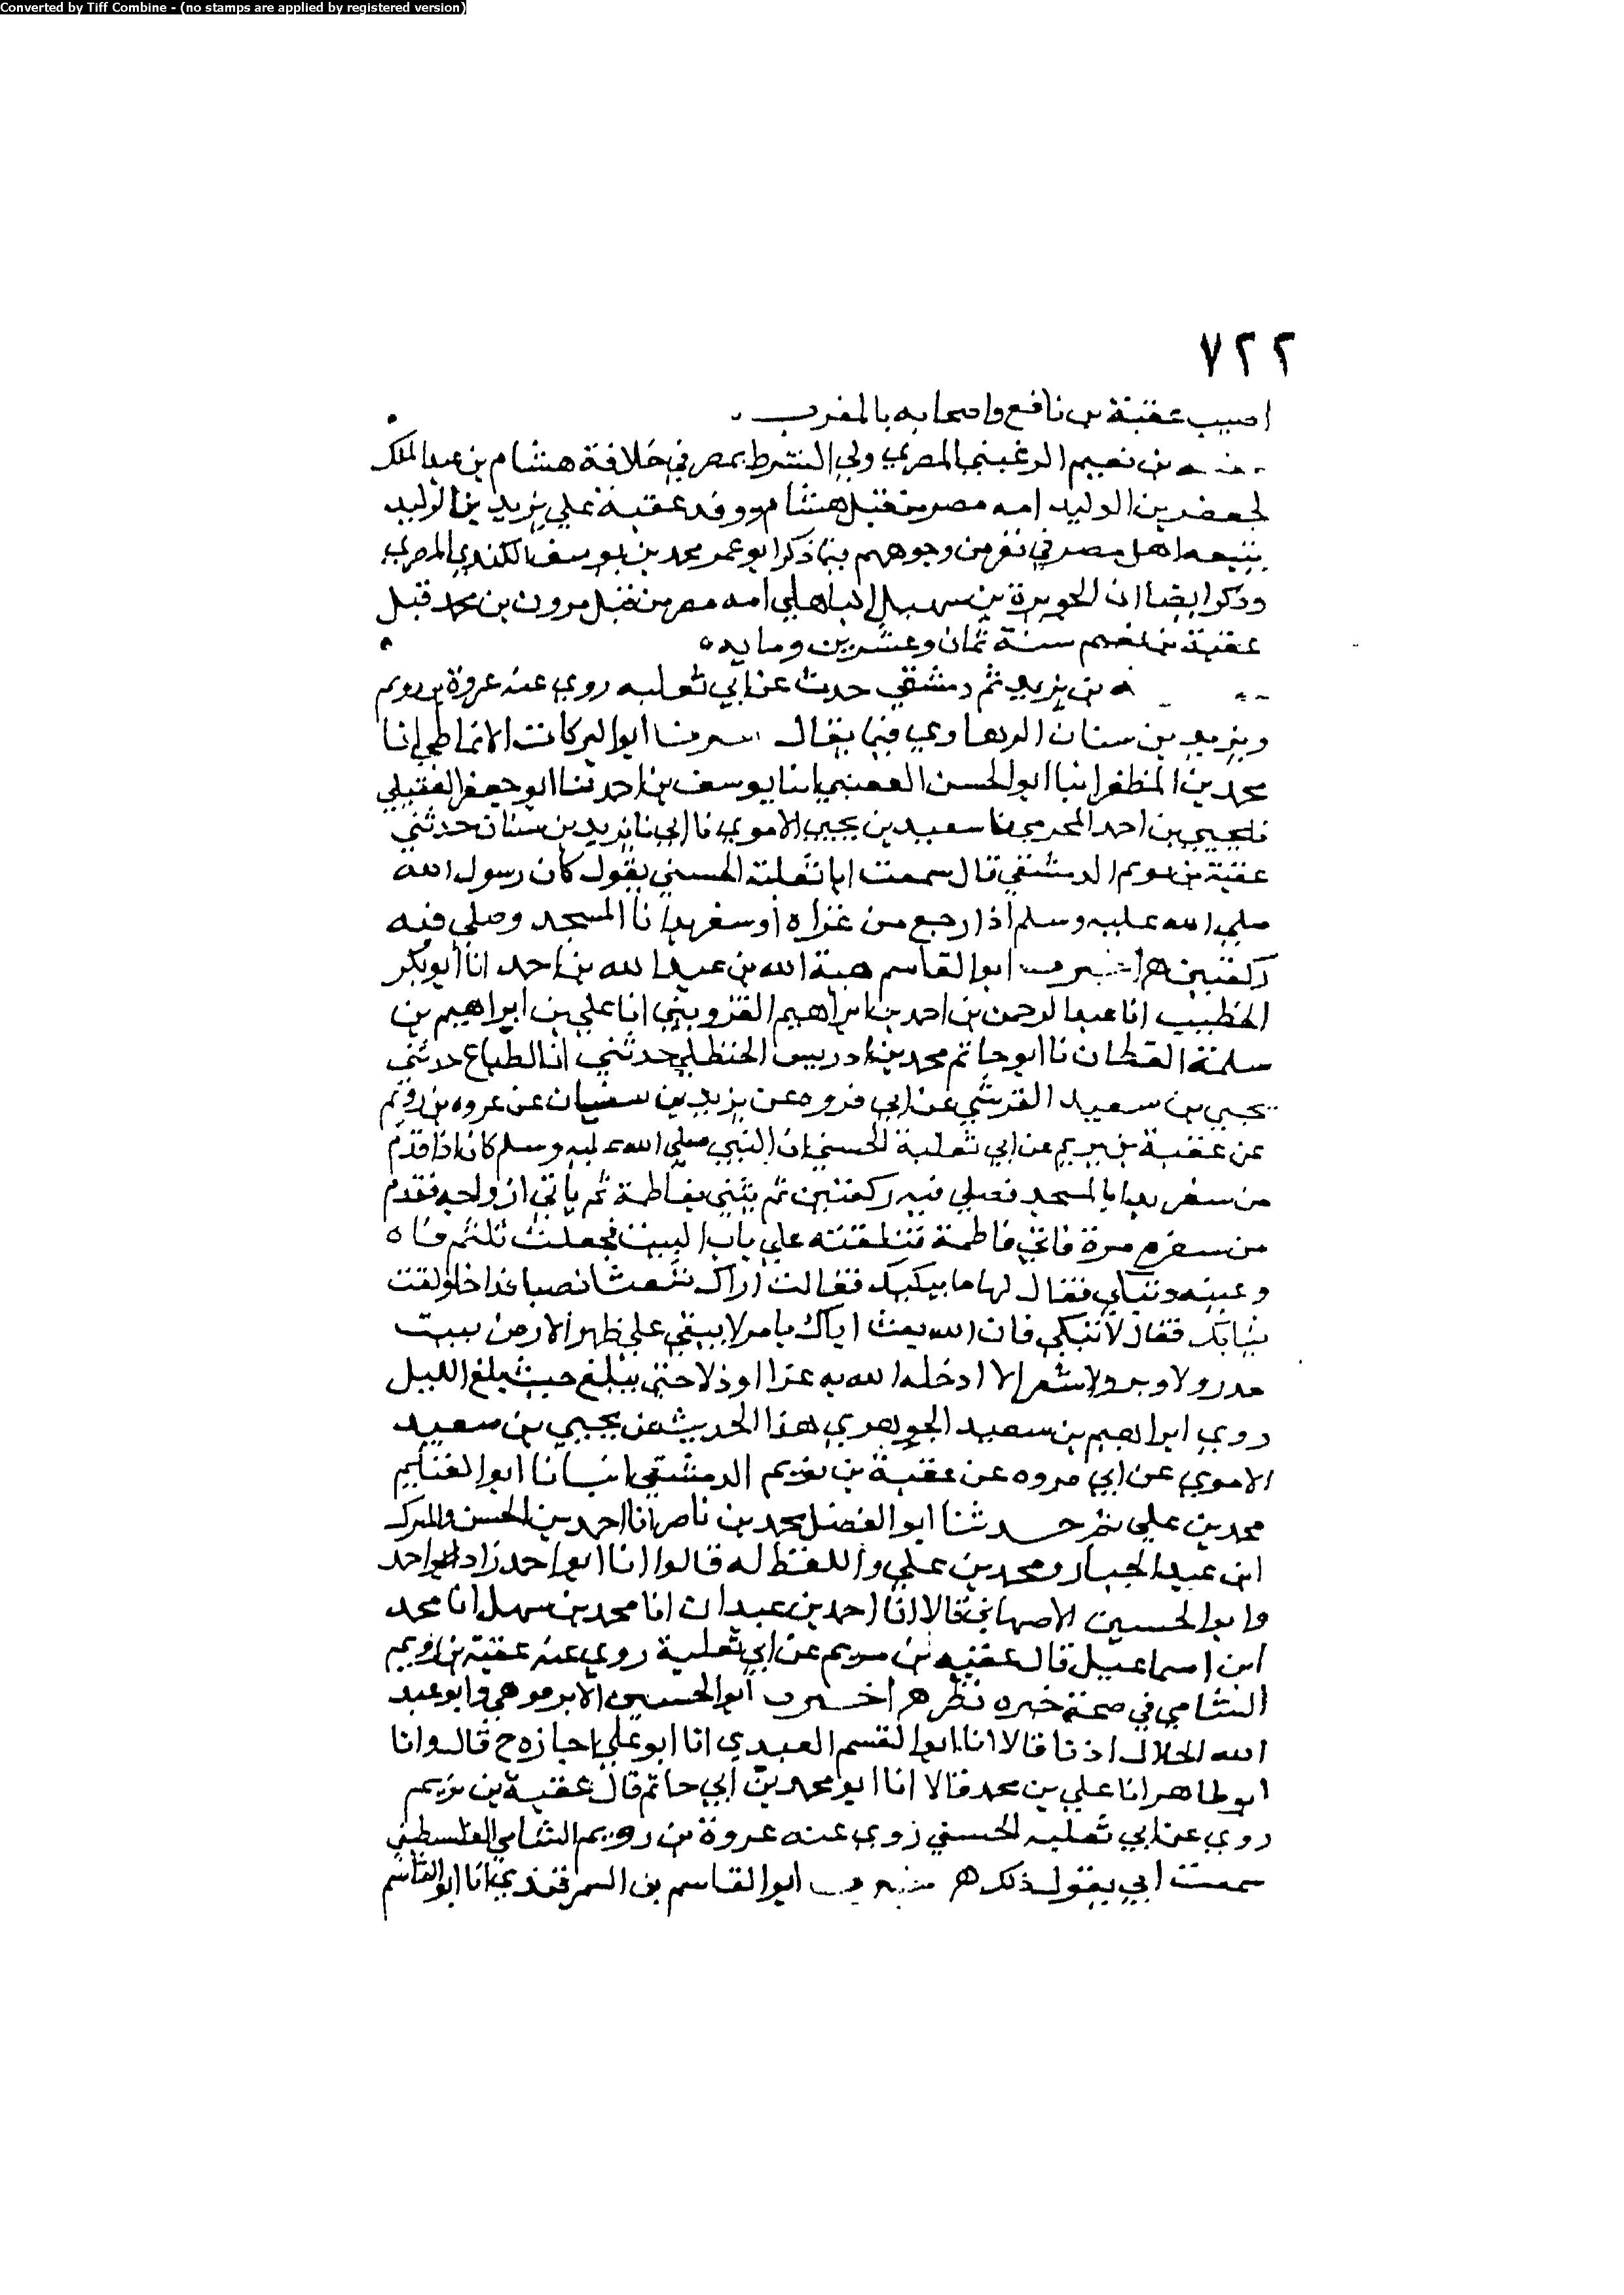 Converted by Tiff Combine - (no stamps are applied by registered version)
٧٢٢
اصيب عقبة بن نافع واصحابه بالمغرب
بن نعيم الرعيني المصري ولي الشرط بمصر في خلافة هشام بن عبد الملك
لحفص بن الوليد امه مصر من قبل هشام ووفد عقبة علي يزيد بن الوليد
ببيعه اهل مصر في نفر من وجوههم فيما ذكر ابو عمر محمد بن يوسف الكندي المصري
وذكر ايضا ان الحوثرة بن سهيل الباهلي امه مصر من قبل مرون بن محمد قبل
عقبة بن نعيم سنة ثمان وعشرين ومايه
بن يريم دمشقي حدث عن ابي ثعلبه روي عنه عروة بن رويم
ويزيد بن سنان الرهاوي فيما يقال ابوا البركات الانماطي انا
محمد بن المظفر انبا ابو الحسن العتيقي انبا يوسف بن احمد ثنا ابو جعفر العقيلي
نا يحيي بن احمد المخرمي نا سعيد بن يحيي الاموي نا ابي نا يزيد بن سنان حدثني
عقبة بن يريم الدمشقي قال سمعت ابا ثعلبة الخسني يقول كان رسول الله
صلي الله عليه وسلم اذا رجع من غزاه او سفر بدا نا المسجد وصلي فيه
ركعتين هـ اخبرنا ابوا القاسم هبة الله بن عبد الله بن احمد انا ابو بكر
الخطيب انا عبد الرحمن بن احمد بن ابراهيم القزويني انا علي بن ابراهيم بن
سلمة القطان نا ابو حاتم محمد بن ادريس الحنظلي حدثني انا الطباع حدثني
يحيي بن سعيد القرشي عن ابي فروه عن يزيد بن سفيان عن عروه بن رويم
عن عقبة بن يريم عن ابي ثعلبة الخسني ان النبي صلي الله عليه وسلم كان اذا قدم
من سفر بدا بالمسجد فصلي فيه ركعتين ثم يثني بفاطمة ثم ياتي ازواجه فقدم
من سفره مرة فاتي فاطمة فتلقته علي باب البيت فجعلت تلثم فاه
وعينه وتبكي فقال لها ما يبكيك فقالت اراك شعثا نصبا قد اخلولقت
ثيابك فقال لا تبكي فان الله بعث اباك بامر لا يبقي علي ظهر الارض بيت
مدر ولا وبر ولا شعر الا ادخله الله به عزا او ذلا حتي يبلغ حيث بلغ الليل
روي ابراهيم بن سعيد الجوهري هذا الحديث عن يحيي بن سعيد
الاموي عن ابي فروه عن عقبة بن يريم الدمشقي انبانا ابوا الغنايم
محمد بن علي ثم حدثنا ابوا الفضل محمد بن ناصر انا احمد بن الحسن والمبرك
ابن عبد الجبار ومحمد بن علي واللفظ له قالوا انا ابوا احمد زاد احمد
وابوا الحسين الاصبهاني قالا انا احمد بن عبدان انا محمد بن سهل انا محمد
ابن اسماعيل قال عقبه بن مريم عن ابي ثعلبة روي عنه عقبة بن رويم
الشامي في صحة خبره نظر هـ اخبرنا ابوا الحسين الابرموهي وابو عبد
الله الخلال اذنا قالا انا ابوا القسم العبدي انا ابو علي اجازه ح قال وانا
ابو طاهر انا علي بن محمد قالا انا ابو محمد بن ابي حاتم قال عقبة بن يريم
روي عن ابي ثعلبه الخسني روي عنه عروة بن رويم الشامي الفلسطيني
سمعت ابي يقول ذلك هـ ابوا القاسم بن السمرقندي انا ابو القاسم